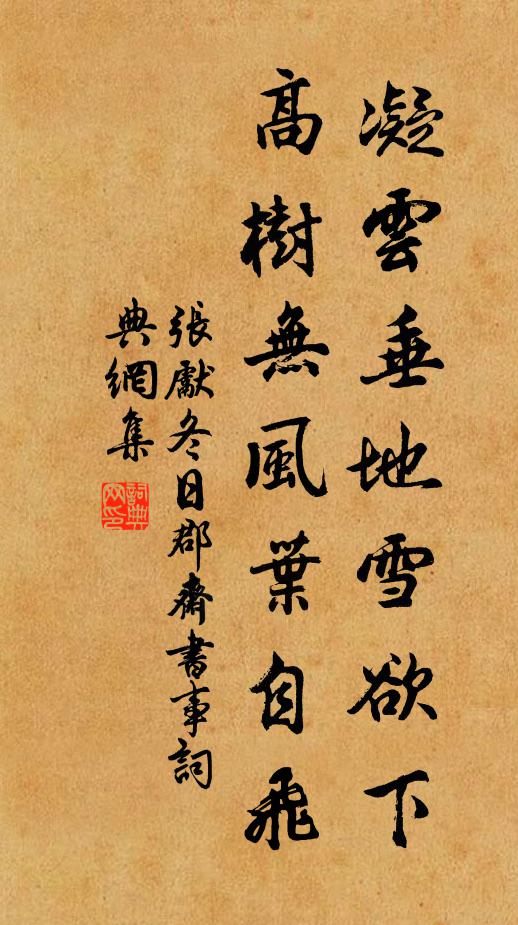 凝雲垂地雪欲下
高樹無風葉自飛
張獻冬日郡齋書事詞
典網集
詞典網印